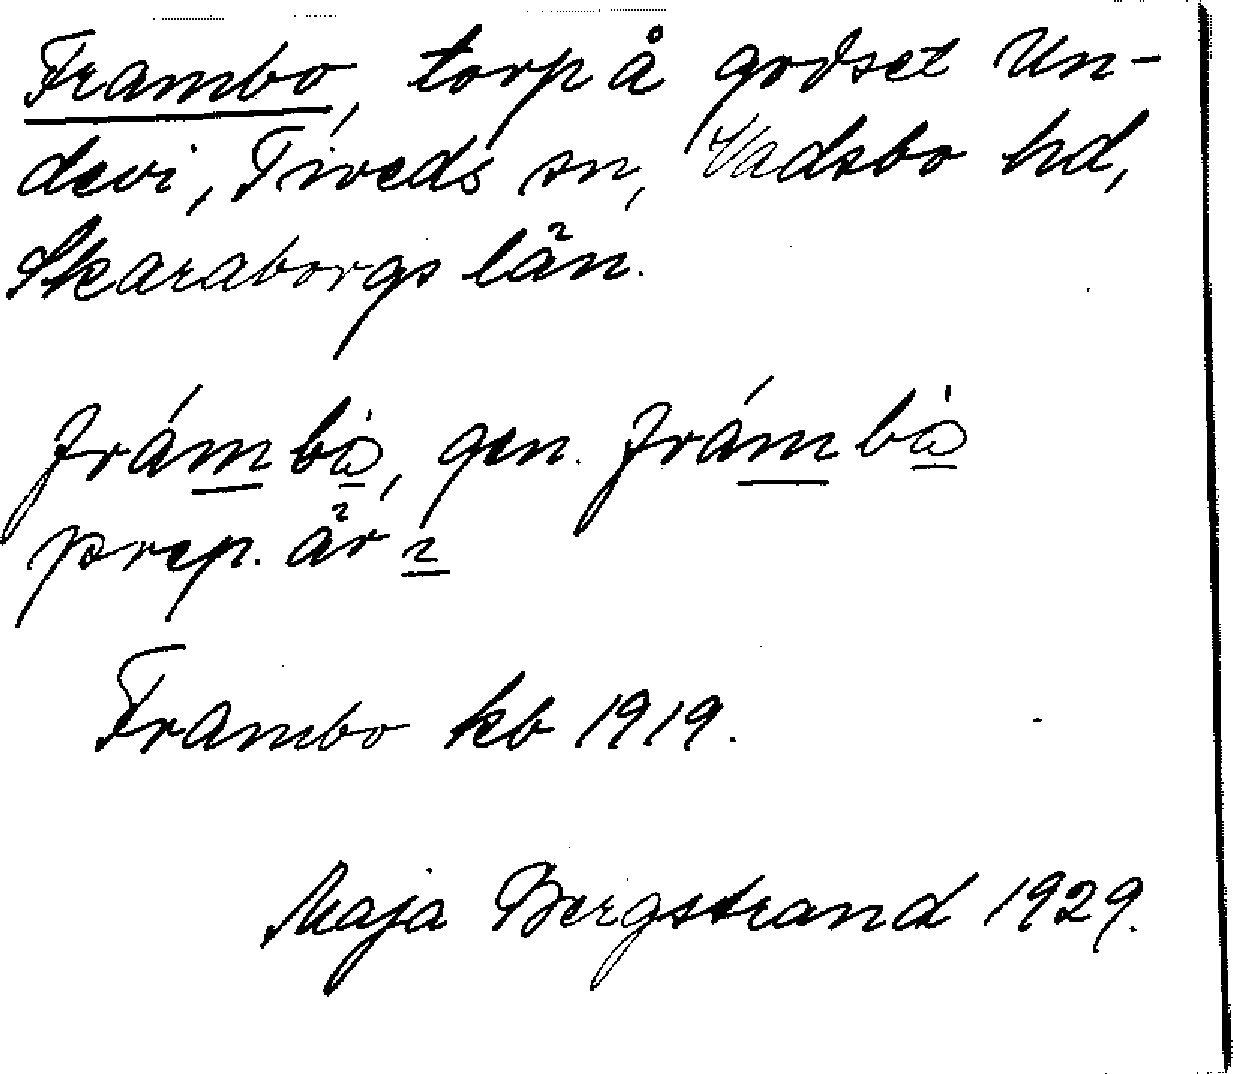 Frambo, torp å godset Un-
devi, Tiveds sn, Vadsbo hd,
Skaraborgs län.
frámbò, gen. frámbò
prep. är i
Frambo kb 1919.
Maja Bergstrand 1929.